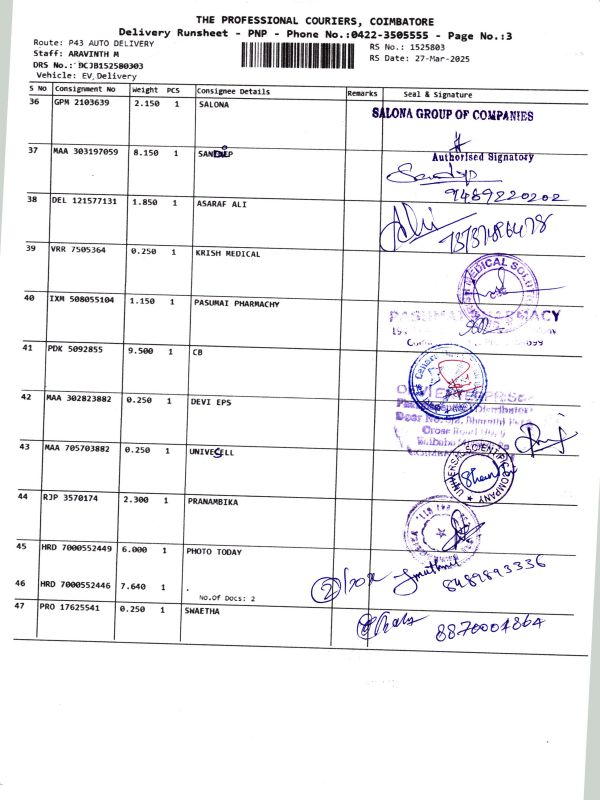 THE PROFESSIONAL COURIERS, COIMBATORE
Delivery Runsheet - PNP - Phone No.:0422-3505555 - Page No.:3
Route: P43 AUTO DELIVERY
RS No.: 1525803
Staff: ARAVINTH M
RS Date: 27-Mar-2025
DRS No.: BCJB152580303
Vehicle: EV,Delivery
S No Consignment No Weight PCS Consignee Details Remarks Seal & Signature
36 GPM 2103639 2.150 1 SALONA
SALONA GROUP OF COMPANIES
Authorised Signatory
37 MAA 303197059 8.150 1 SANDIEP
9489220202
38 DEL 121577131 1.850 1 ASARAF ALI
39 VRR 7505364 0.250 1 KRISH MEDICAL
MEDICAL SOLUTI
40 IXM 508055104 1.150 1 PASUMAI PHARMACHY
41 PDK 5092855 9.500 1 CB
42 MAA 302823882 0.250 1 DEVI EPS
Door No.
Cross Road
43 MAA 705703882 0.250 1 UNIVECELL
UNIVERSAL SCIENTIFIC COMPANY
44 RJP 3570174 2.300 1 PRANAMBIKA
45 HRD 7000552449 6.000 1 PHOTO TODAY
8489893336
46 HRD 7000552446 7.640 1 .
No.Of Docs: 2
47 PRO 17625541 0.250 1 SWAETHA
8870004864